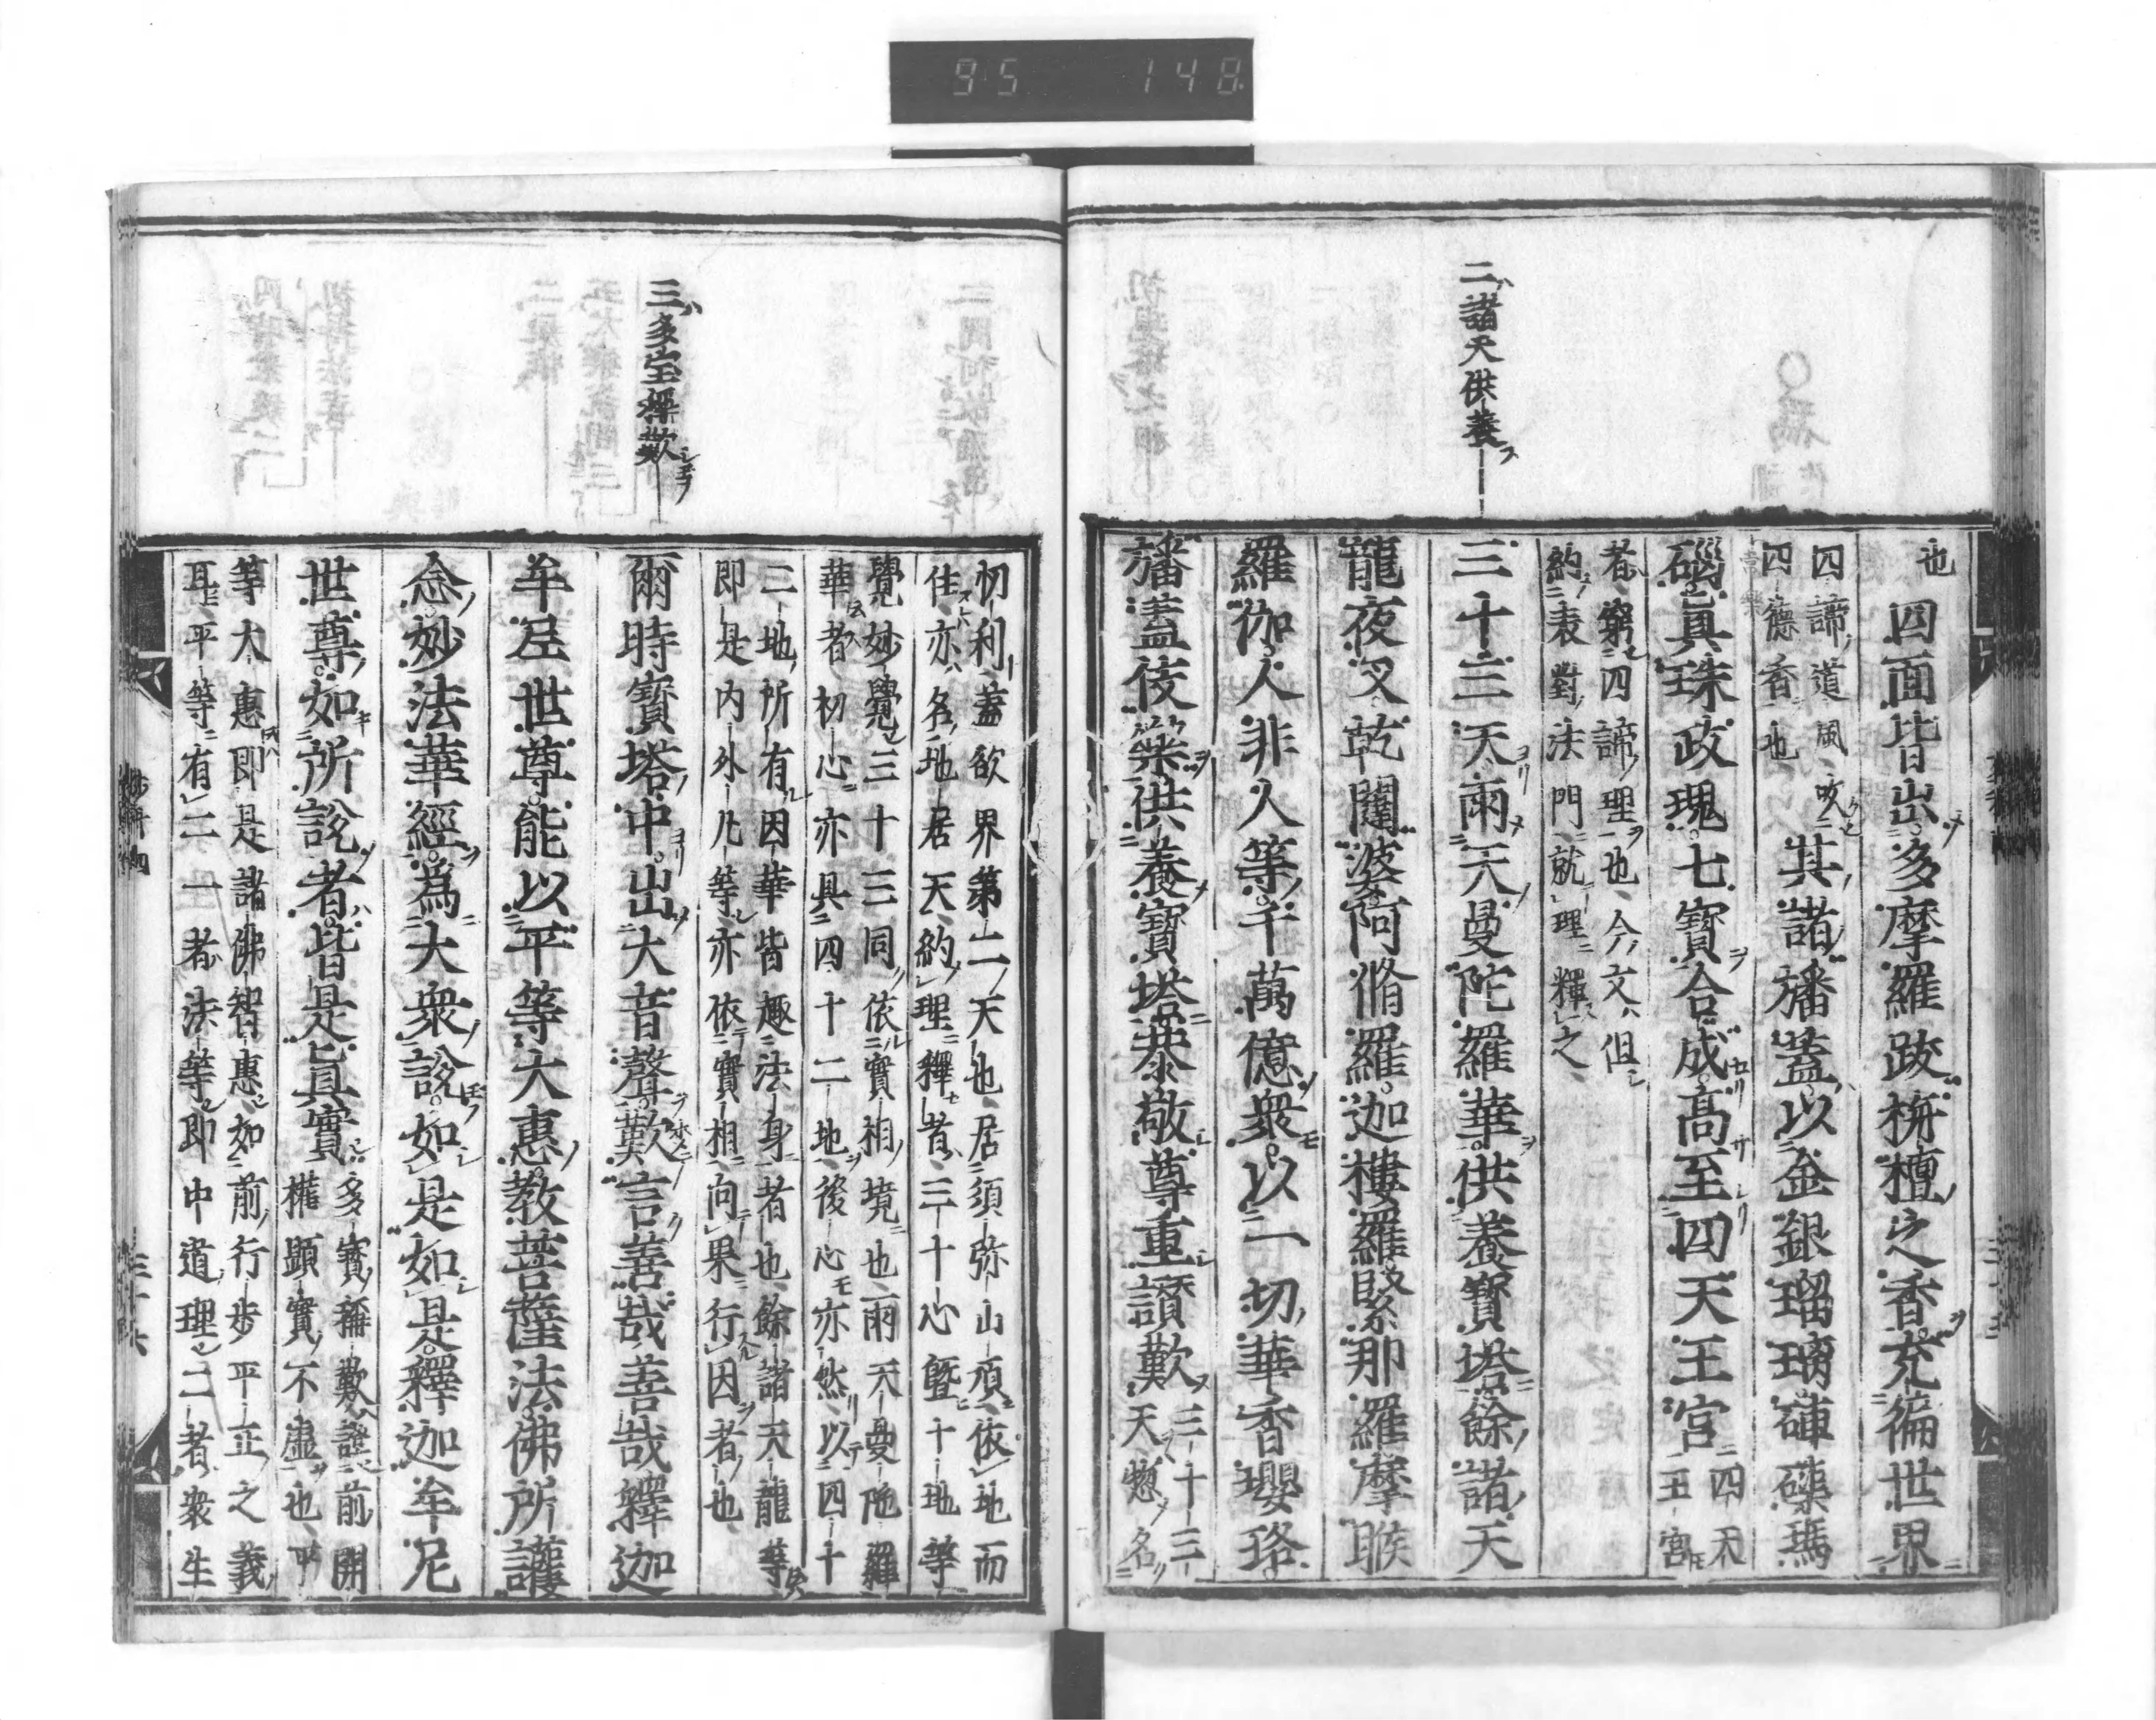 95 148
二諸天供養
也 四面皆出多摩羅跋栴檀之香充徧世界
四諦道風吹
四德香也 其諸旛蓋以金銀瑠璃硨磲瑪
常樂
碯真珠玫瑰七寶合成高至四天王宮 四天
王宮
者窮四諦理也今文但
約表對法門就理釋之
三十三天雨天曼陀羅華供養寶塔餘諸天
龍夜叉乾闥婆阿脩羅迦樓羅緊那羅摩睺
羅伽人非人等千萬億眾以一切華香瓔珞
旛蓋伎樂供養寶塔恭敬尊重讚歎 三十三
天惣名
三多宝稱歎
忉利蓋欲界第二天也居須弥山頂依地而
住亦名地居天約理釋者三十心曁十地等
覺妙覺三十三同依實相境也雨天曼陀羅
華者初心亦具四十二地後心亦然以四十
二地所有因華皆趣法身者也餘諸天龍等
即是內外凡等亦依實相向果行因者也
爾時寶塔中出大音聲歎言善哉善哉釋迦
牟尼世尊能以平等大惠教菩薩法佛所護
念妙法華經為大眾說如是如是釋迦牟尼
世尊如所說者皆是真實 多寶稱歎證前開
權顯實不虛也平
等大惠即是諸佛智惠如前行步平正之義
耳平等有二一者法等即中道理二者眾生